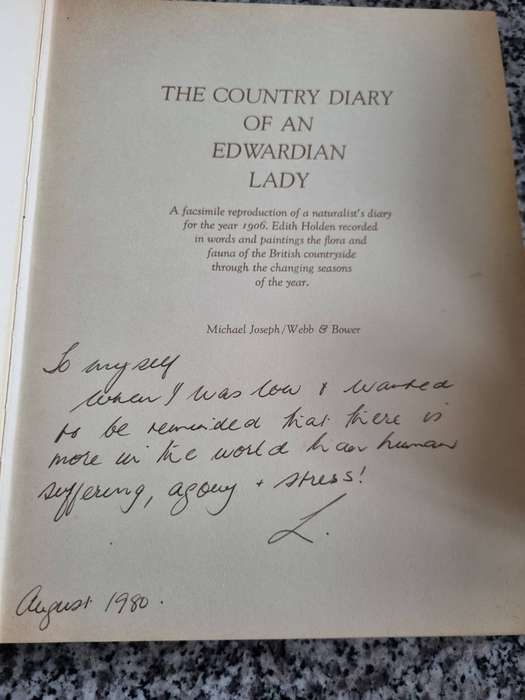 THE COUNTRY DIARY
OF AN
EDWARDIAN
LADY
A facsimile reproduction of a naturalist's diary
for the year 1906. Edith Holden recorded
in words and paintings the flora and
fauna of the British countryside
through the changing seasons
of the year.
Michael Joseph/Webb & Bower
To myself
when I was low & wanted
to be reminded that there is
more in the world than human
suffering, agony + stress!
L.
August 1980.